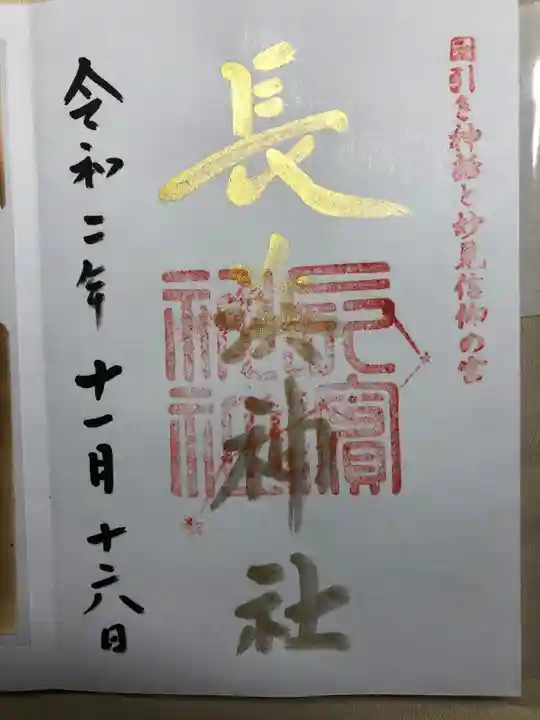 国引き神話と妙見信仰の宮
長浜神社
長濱神社
令和二年十一月十六日